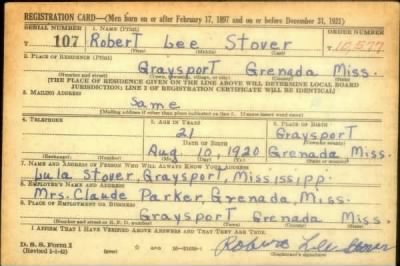 REGISTRATION CARD—(Men born on or after February 17, 1897 and on or before December 31, 1921)
SERIAL NUMBER 1. NAME (Print) ORDER NUMBER
T 107 Robert Lee Stover T 10,577
(First) (Middle) (Last)
2. PLACE OF RESIDENCE (Print)
Graysport Grenada Miss.
(Number and street) (Town, township, village, or city) (County) (State)
[THE PLACE OF RESIDENCE GIVEN ON THE LINE ABOVE WILL DETERMINE LOCAL BOARD
JURISDICTION; LINE 2 OF REGISTRATION CERTIFICATE WILL BE IDENTICAL]
3. MAILING ADDRESS
Same
[Mailing address if other than place indicated on line 2. If same insert word same]
4. TELEPHONE 5. AGE IN YEARS 6. PLACE OF BIRTH
21 Graysport
DATE OF BIRTH (Town or county)
Aug. 10, 1920 Grenada Miss.
(Exchange) (Number) (Mo.) (Day) (Yr.) (State or country)
7. NAME AND ADDRESS OF PERSON WHO WILL ALWAYS KNOW YOUR ADDRESS
Lula Stover, Graysport, Mississipp.
8. EMPLOYER'S NAME AND ADDRESS
Mrs. Claude Parker, Grenada, Miss.
9. PLACE OF EMPLOYMENT OR BUSINESS
Graysport Grenada Miss.
(Number and street or R. F. D. number) (Town) (County) (State)
I AFFIRM THAT I HAVE VERIFIED ABOVE ANSWERS AND THAT THEY ARE TRUE.
D. S. S. Form 1 Robert Lee Stover
(Registrant's signature)